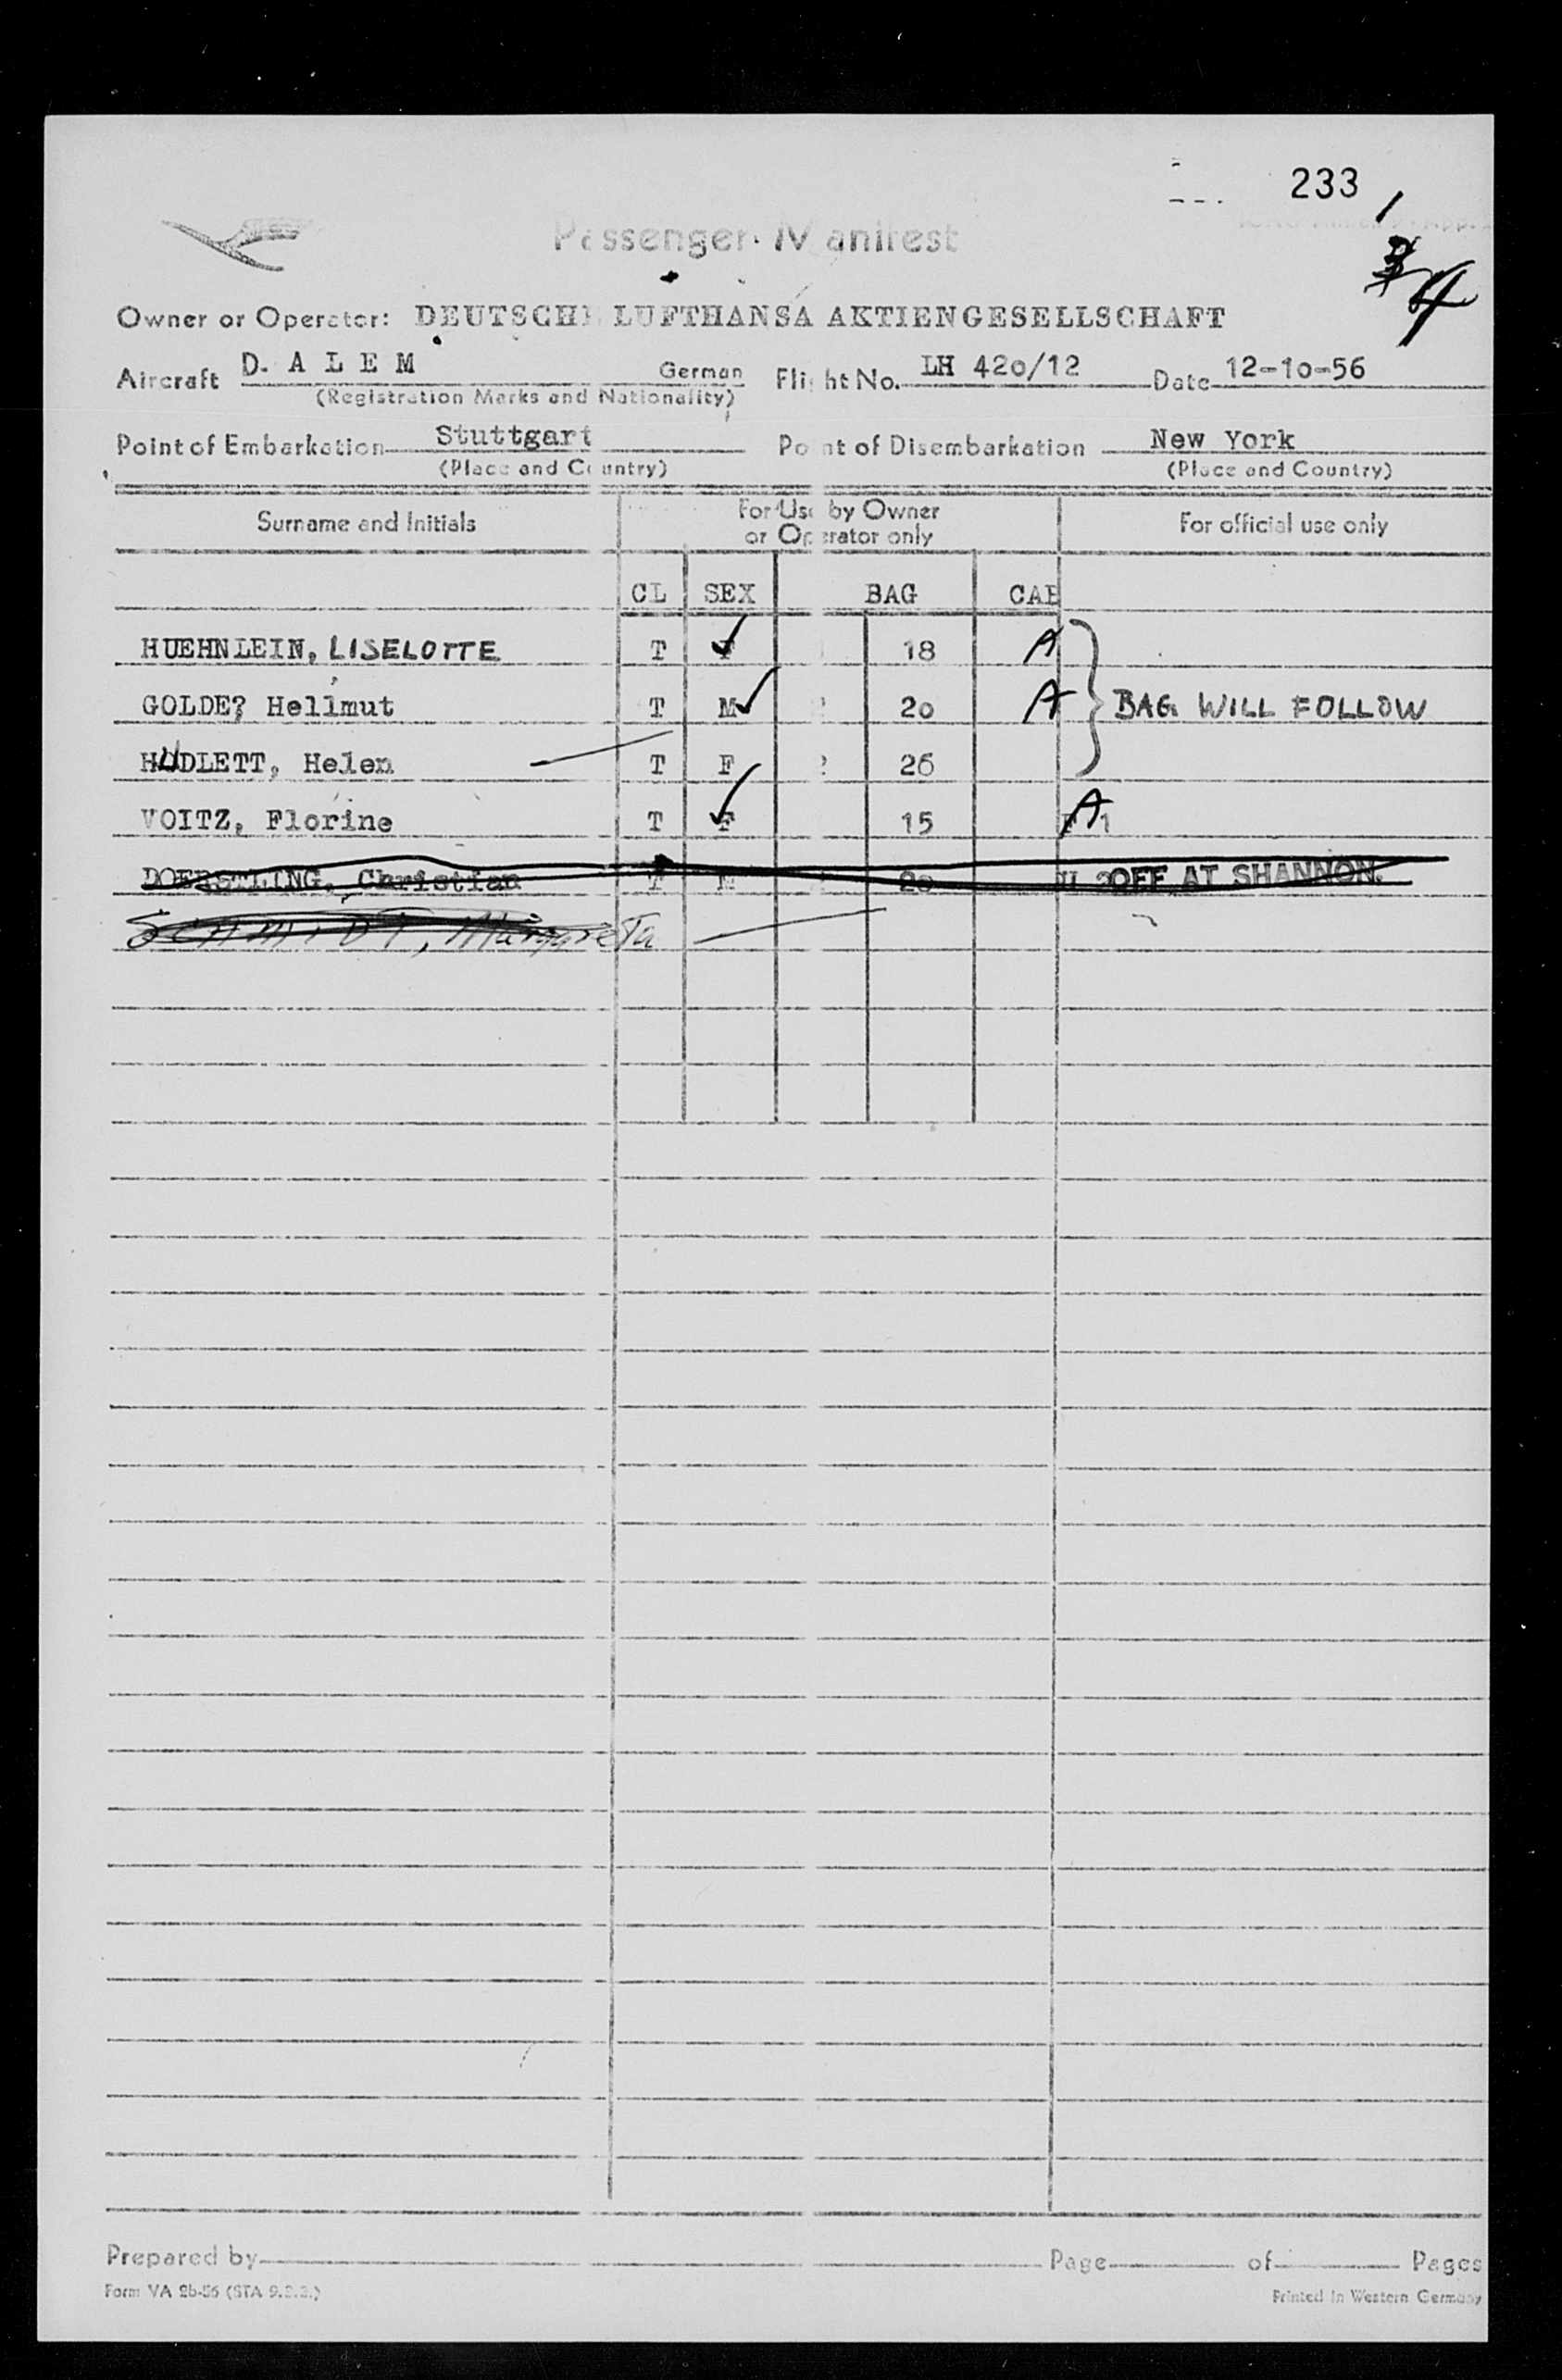 233 /
4
Passenger Manifest
Owner or Operator: DEUTSCHE LUFTHANSA AKTIENGESELLSCHAFT
Aircraft D. A L E M German Flight No. LH 420/12 Date 12-10-56
(Registration Marks and Nationality)
Point of Embarkation Stuttgart Point of Disembarkation New York
(Place and Country) (Place and Country)
Surname and Initials For Use by Owner or Operator only For official use only
CL SEX BAG CAB
HUEHNLEIN, LISELOTTE T F 18 A
GOLDE? Hellmut T M 20 A BAG. WILL FOLLOW
HUDLETT, Helen T F 26
VOITZ, Florine T F 15 A 1
DOERSTLING, Christian T M 20 OFF AT SHANNON.
SCHMIDT, Margareta
Prepared by Page of Pages
Form VA 2b-56 (STA 9.2.2.) Printed in Western Germany